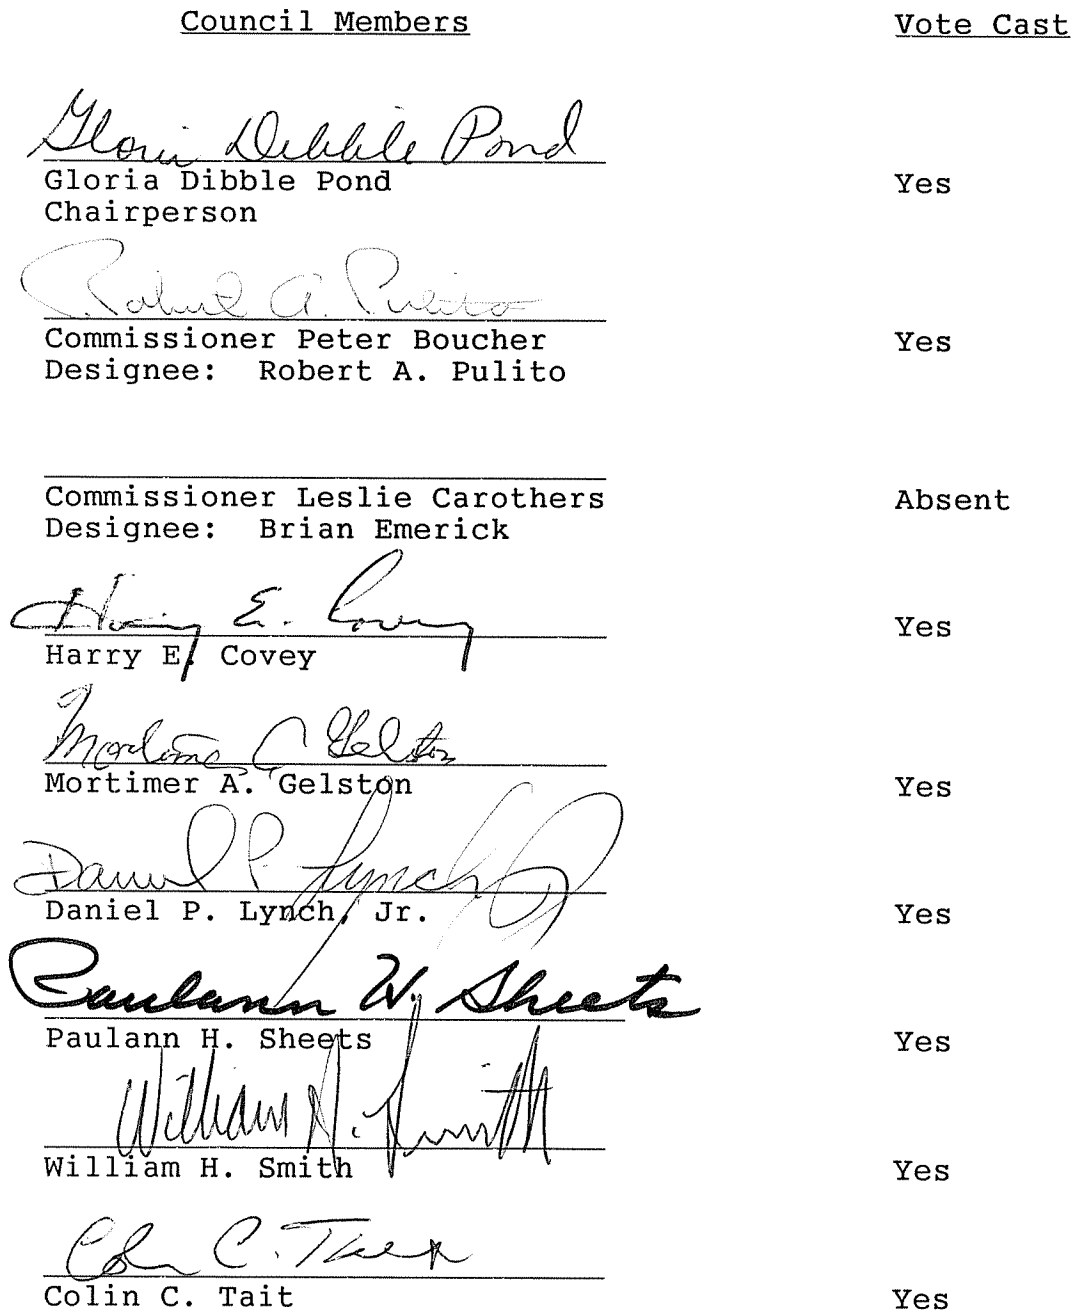 Council Members Vote Cast
Gloria Dibble Pond
Gloria Dibble Pond Yes
Chairperson
Robert A. Pulito
Commissioner Peter Boucher Yes
Designee: Robert A. Pulito
Commissioner Leslie Carothers Absent
Designee: Brian Emerick
Harry E. Covey
Yes
Harry E. Covey
Mortimer A. Gelston
Mortimer A. Gelston Yes
Daniel P. Lynch, Jr.
Daniel P. Lynch, Jr. Yes
Paulann H. Sheets
Paulann H. Sheets Yes
William H. Smith
William H. Smith Yes
Colin C. Tait
Colin C. Tait Yes